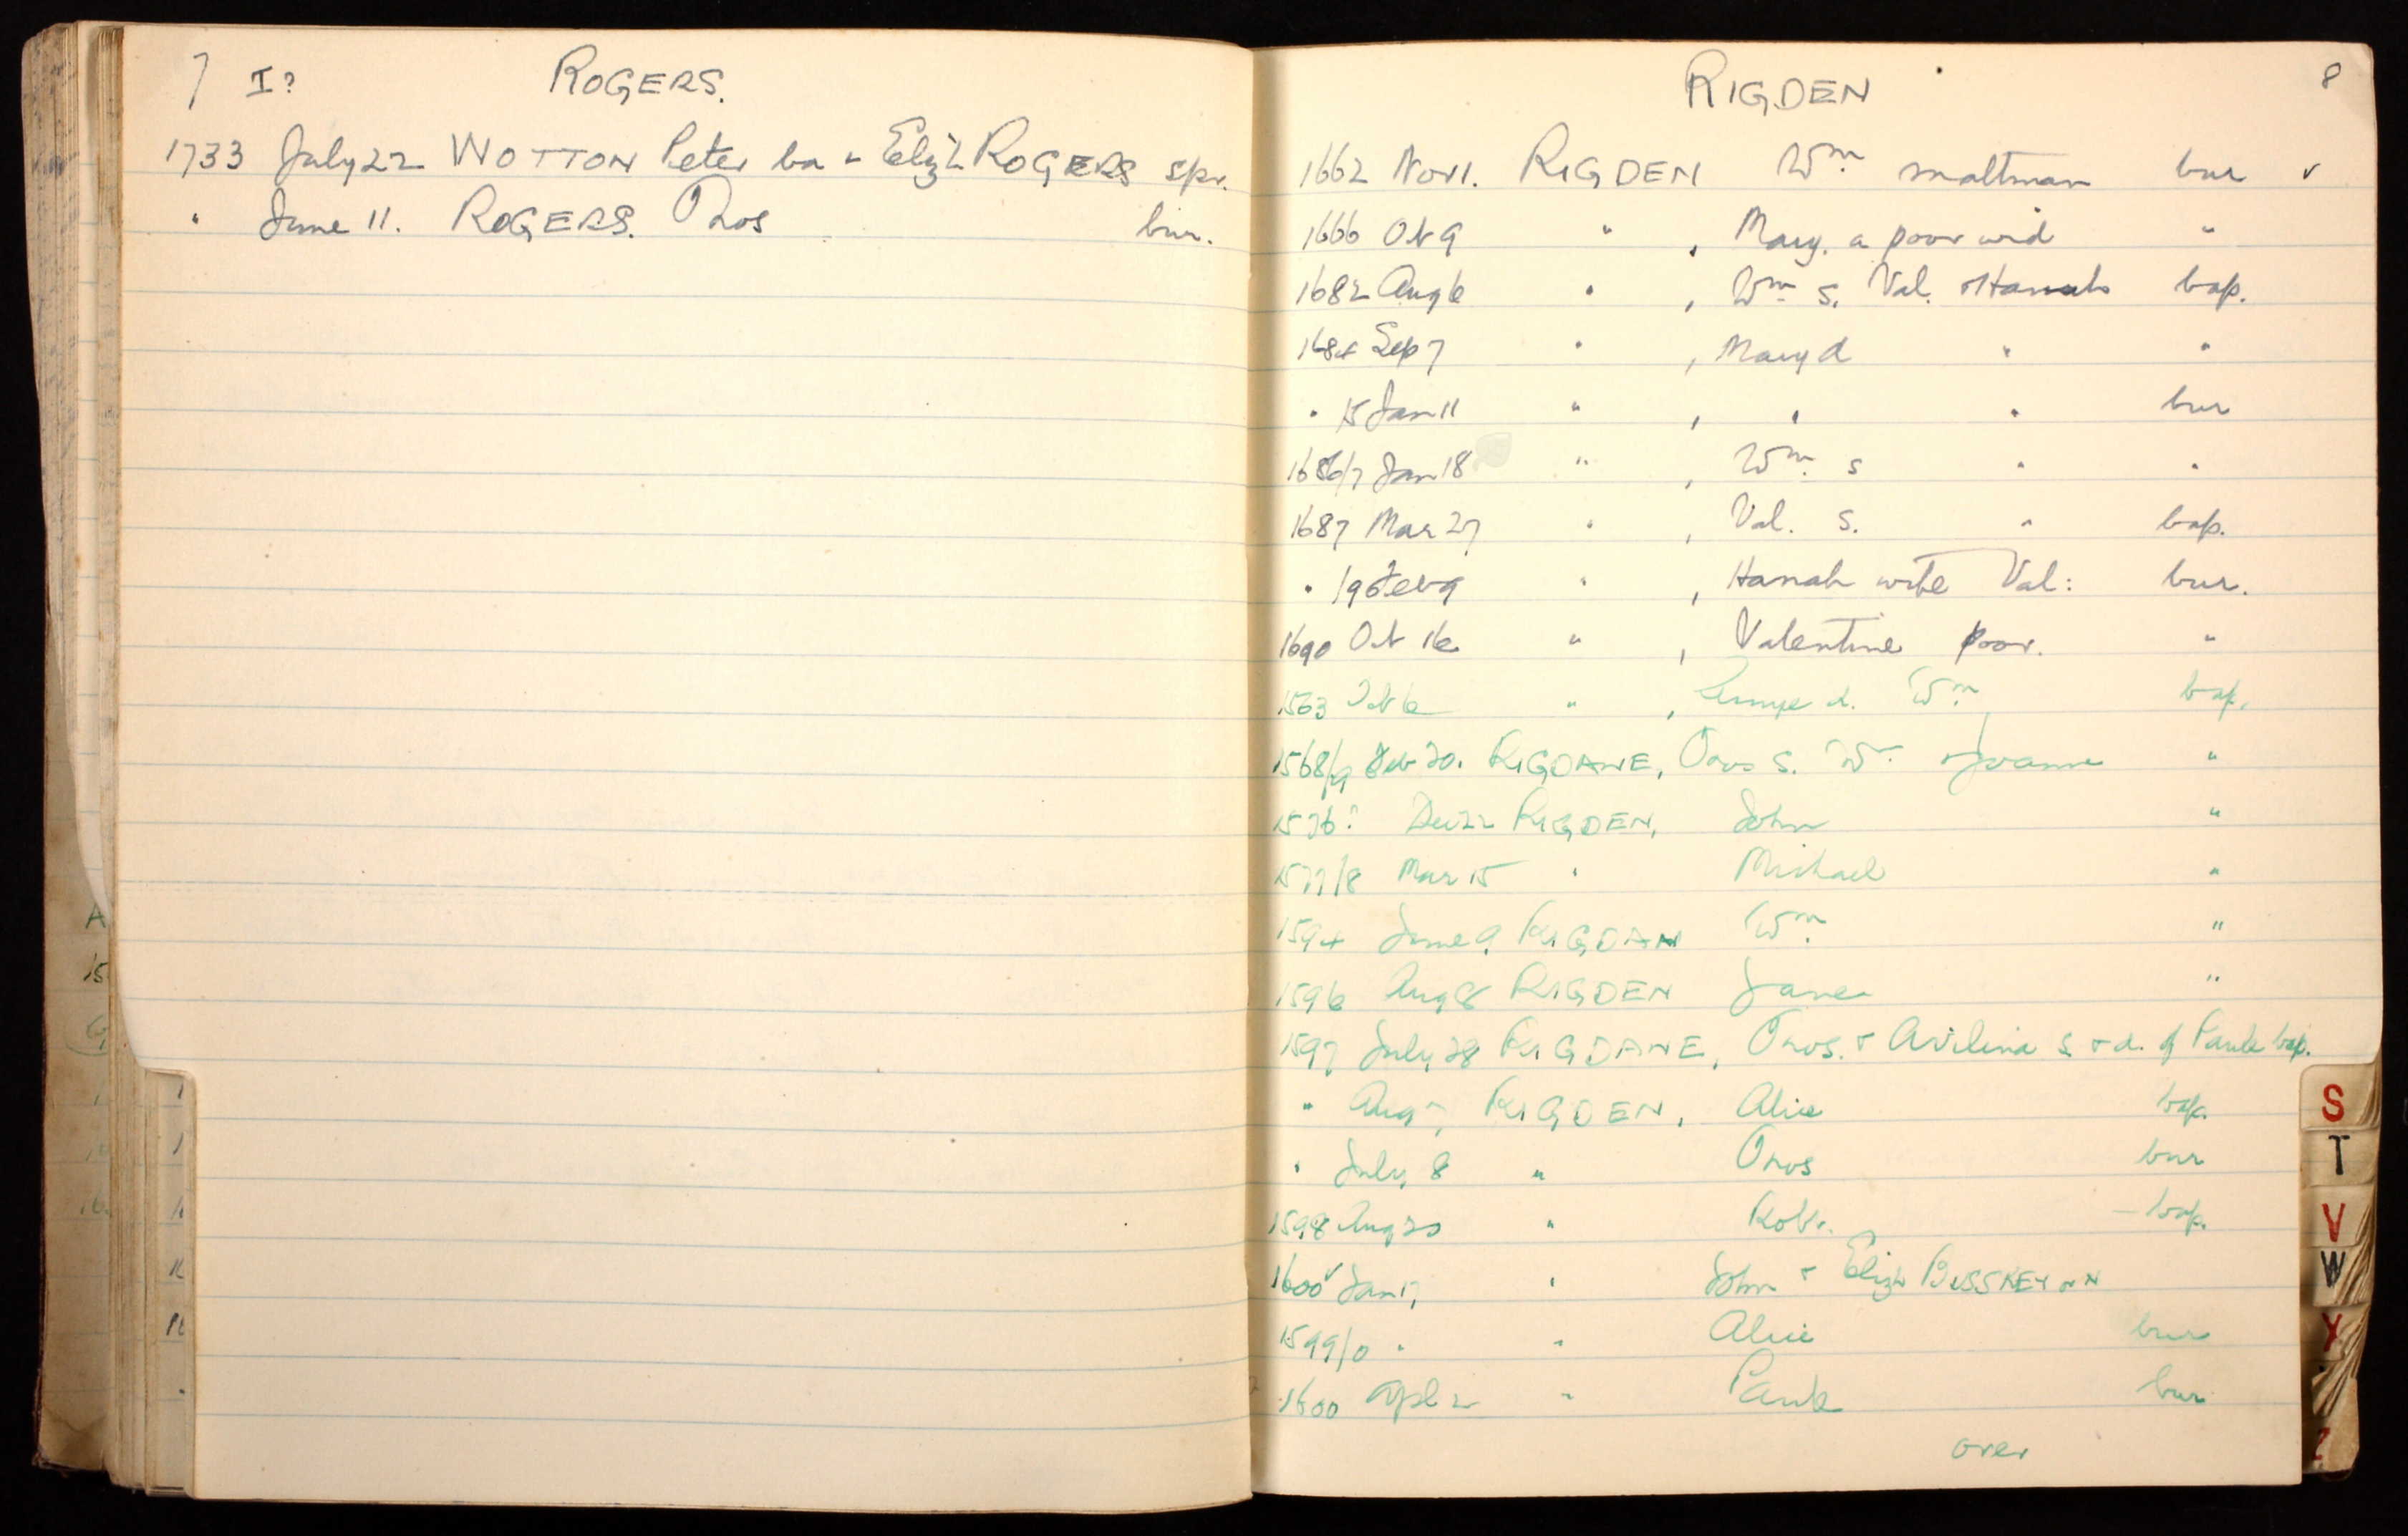 7 I? ROGERS.
1733 July 22 WOTTON Peter ba & Eliz'h ROGERS spr.
" June 11. ROGERS. Thos bur.
RIGDEN 8
1662 Nov 1. RIGDEN Wm maltman bur v
1666 Oct 9 " , Mary. a poor wid "
1682 Aug 6 " , Wm s. Val. & Hannah bap.
1684 Sep 7 " , Mary d " "
" Jan 11 " , " " bur
1686/7 Jan 18 " , Wm. s " "
1687 Mar 27 " , Val. s. " bap.
" Feb 9 " , Hannah wife Val: bur.
1690 Oct 16 " , Valentine poor. "
1563 " , d. Wm bap.
1568/9 Feb 20. RIGDANE, Thos s. Wm & Joanne "
1576? Dec 22 RIGDEN, John "
1577/8 Mar 15 " Michael "
1594 June 9 RIGDAN Wm "
1596 Aug 8 RIGDEN Jane "
1597 July 28 RIGDANE, Thos. & Avilina s. & d. of Paule bap.
" Aug 7, RIGDEN, Alice bap.
" July 8 " Thos bur
1598 Aug 20 " Robt. - bap.
1600 Jan 17, " John & Eliz'h
1599/0 " " Alice bur
1600 Apl 2 " Paule bur
over
S
T
V
W
Y
Z